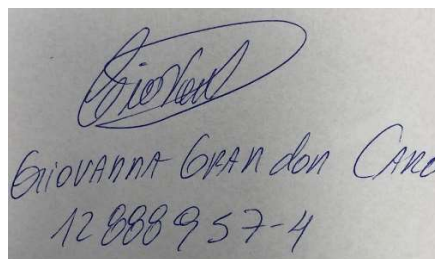 Giovanna
GiovAnnA GRAndon CARO
12888957-4